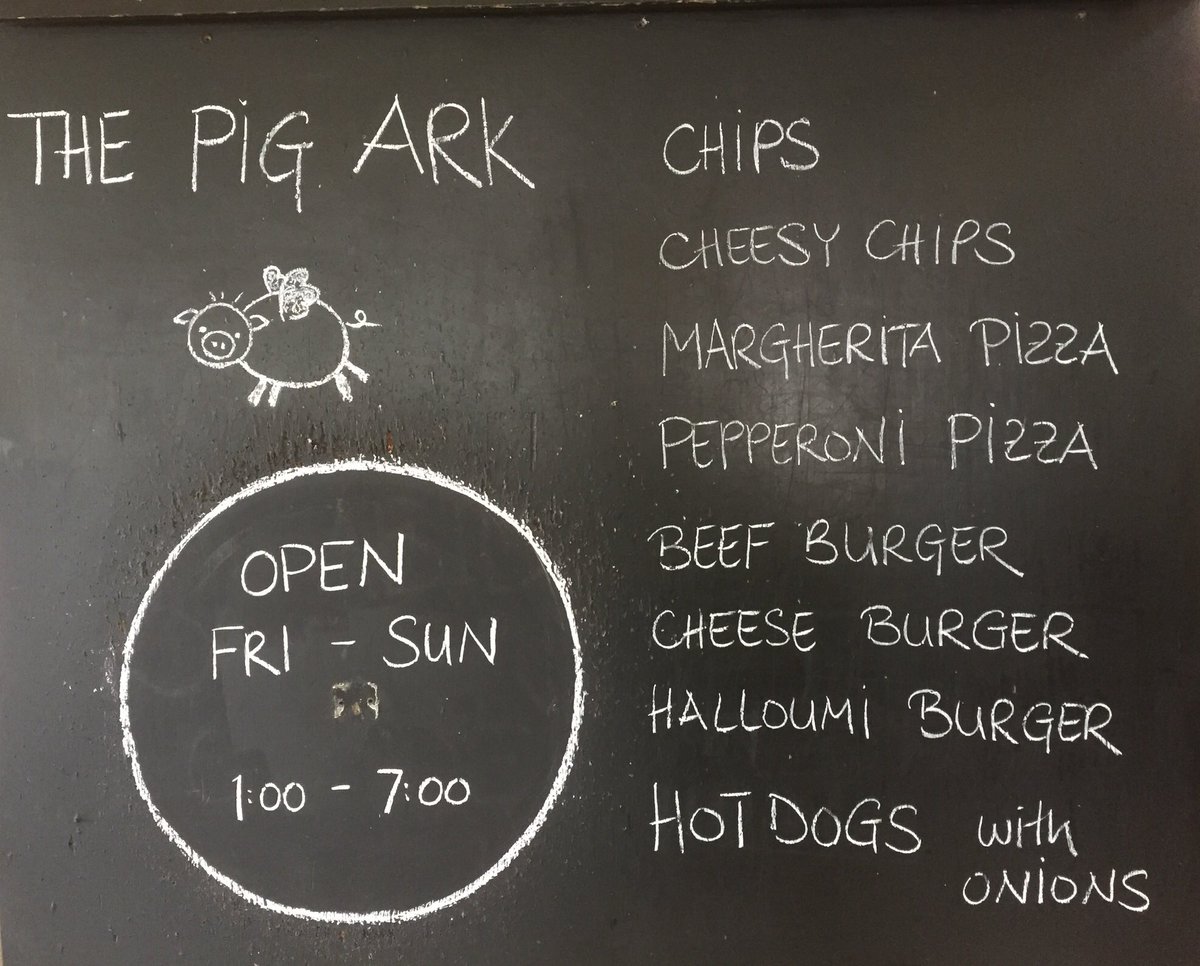 THE PIG ARK
OPEN
FRI - SUN
1:00 - 7:00
CHIPS
CHEESY CHIPS
MARGHERITA PIZZA
PEPPERONI PIZZA
BEEF BURGER
CHEESE BURGER
HALLOUMI BURGER
HOT DOGS with
ONIONS